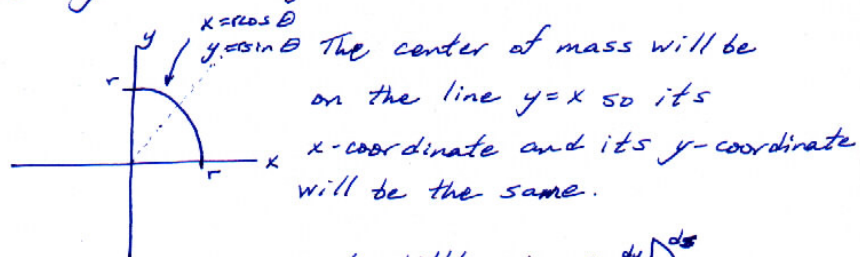 x = r cos θ
y = r sin θ
y
r
x
r
The center of mass will be
on the line y = x so its
x-coordinate and its y-coordinate
will be the same.
dy ds